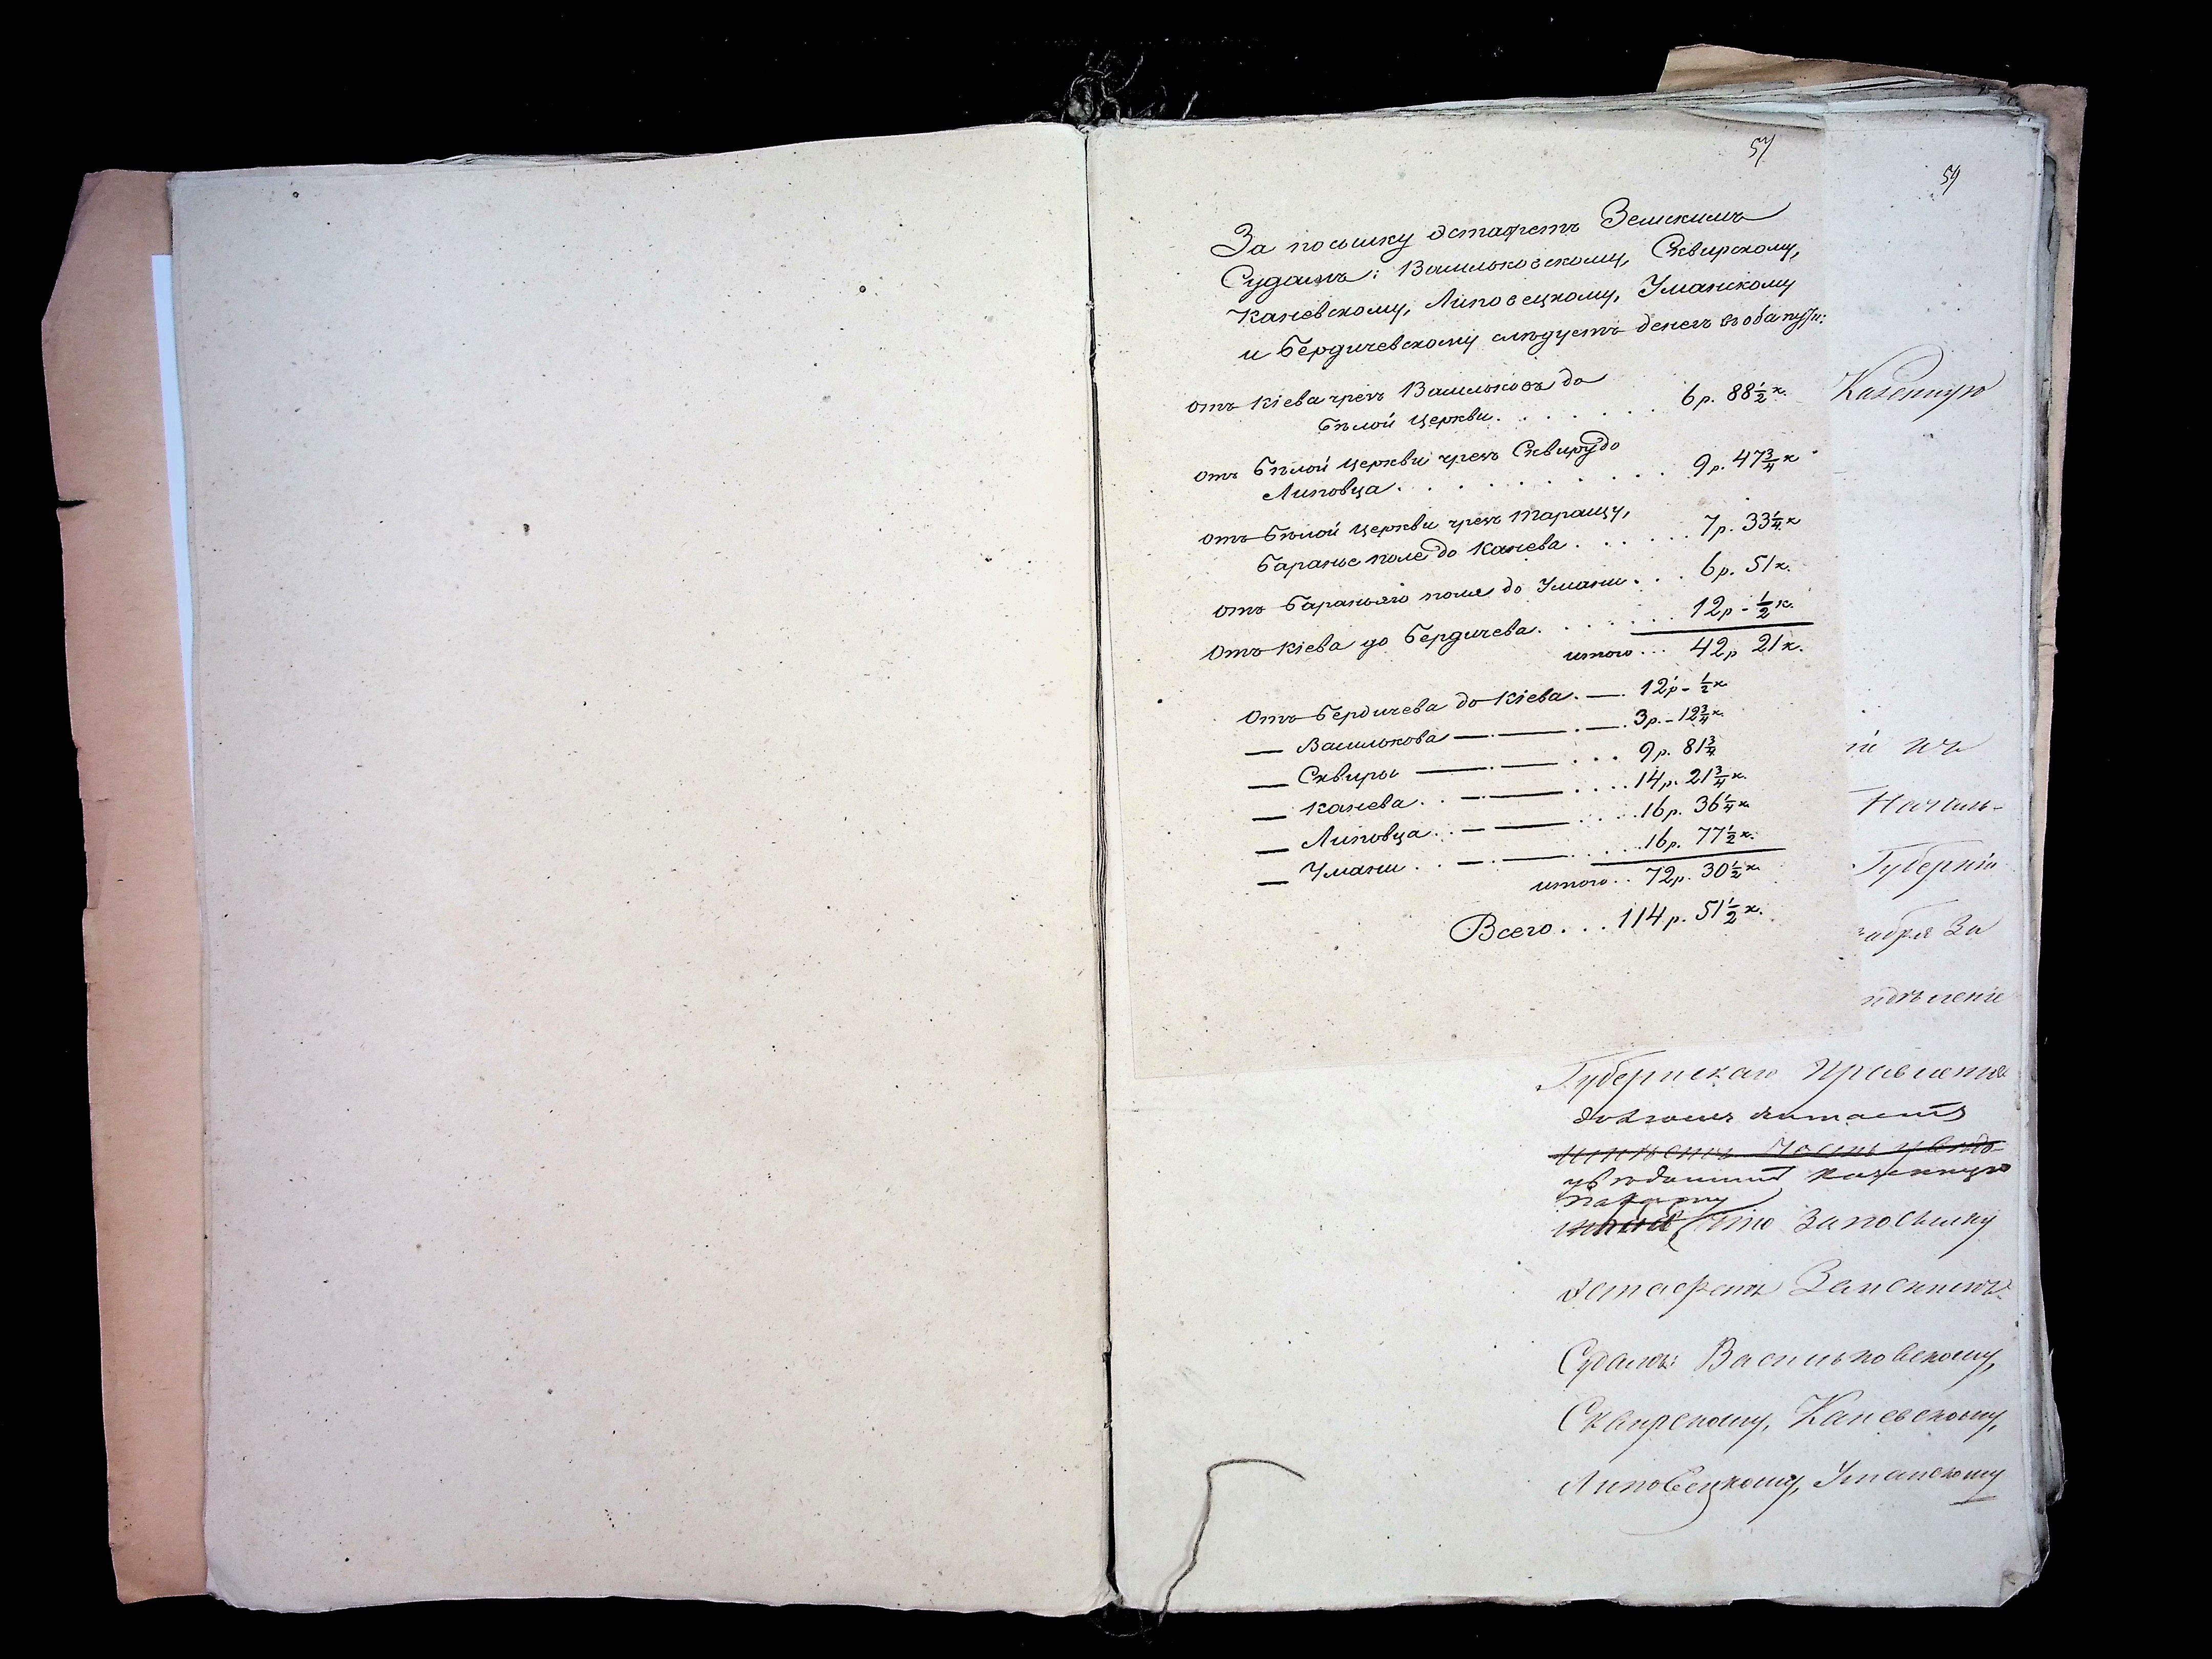 57
За посылку эстафетъ Земскимъ
Судамъ: Васильковскому, Сквирскому,
Каневскому, Липовецкому, Уманскому
и Бердичевскому слѣдуетъ денегъ въ оба пути:
отъ Кіева чрезъ Васильковъ до
Бѣлой Церкви. . . . . . . 6 р. 88½ к.
отъ Бѣлой Церкви чрезъ Сквиру до
Липовца. . . . . . . . 9 р. 47¾ к
отъ Бѣлой Церкви чрезъ Таращу,
Баранье поле до Канева . . . . . . 7 р. 33¼ к
отъ Бараньяго поля до Умани . . . 6 р. 51 к.
Отъ Кіева до Бердичева. . . . . . . 12 р - ½ к.
итого . . . 42 р 21 к.
Отъ Бердичева до Кіева . — . 12 р - ½ к
— Василькова — . — . — . 3 р. - 12¾ к.
— Сквиры — . — . . . 9 р. 81¾
— Канева . . — . — . . . . 14 р. 21¾ к.
— Липовца . . — — . . . . 16 р. 36¼ к
— Умани . . — . — . . . 16 р. 77½ к.
итого . . 72 р. 30½ к
Всего . . . 114 р. 51½ к.
59
Казенную
й въ
Началь-
Губерніи
абря за
Губернскаго Правленія
увѣдомить казенную
палату
что за посылку
эстафетъ Земскимъ
Судамъ: Васильковскому,
Сквирскому, Каневскому,
Липовецкому, Уманскому